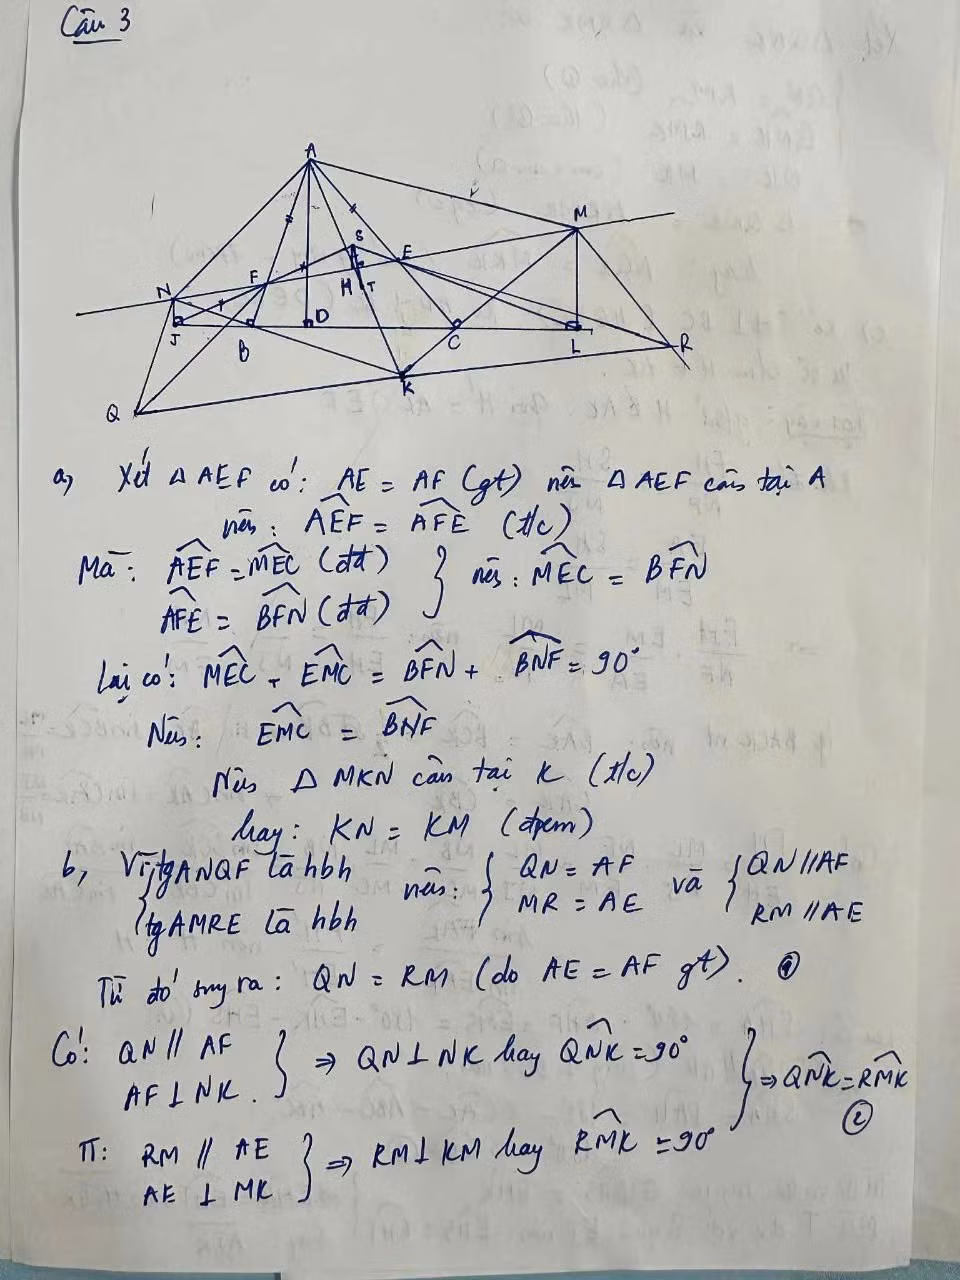 Câu 3
A
M
S
E
F
N
H
T
D
J
B
C
L
R
K
Q
a, Xét △ AEF có: AE = AF (gt) nên △ AEF cân tại A
nên: AEF = AFE (t/c)
Mà: AEF = MEC (đđ)
AFE = BFN (đđ)
nên: MEC = BFN
Lại có: MEC + EMC = BFN + BNF = 90°
Nên: EMC = BNF
Nên △ MKN cân tại K (t/c)
hay: KN = KM (đpcm)
b, Vì tgANQF là hbh
tgAMRE là hbh
nên: QN = AF
MR = AE
và QN // AF
RM // AE
Từ đó suy ra: QN = RM (do AE = AF gt). ①
Có: QN // AF
AF ⊥ NK.
⇒ QN ⊥ NK hay QNK = 90°
TT: RM // AE
AE ⊥ MK
⇒ RM ⊥ KM hay RMK = 90°
⇒ QNK = RMK
②